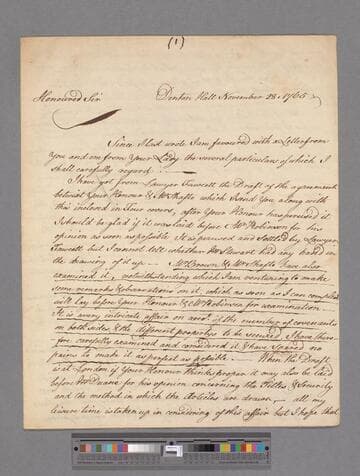 (1)
Honoured Sir
Denton Hall November 28. 1765
Since I last wrote I am favoured with a Letter from
You and one from Your Lady the several particulars of which I
shall carefully regard
I have got from Lawyer Fawcett the Draft of the agreement
betwixt Your Honour & Mr which I send You along with
this inclosed in Four covers, after Your Honour has perused it
I should be glad if it was laid before Mr Robinson for his
opinion as soon as possible. It is perused and Settled by Lawyer
Fawcett but I cannot tell whether Mr Stewart had any hand in
the drawing of it up. Mr & Mr have also
examined it, notwithstanding which I am venturing to make
some remarks & observations on it, which as soon as I can compleat
will lay before Your Honour & Mr Robinson for examination
It is a very intricate affair on acct. of the number of covenants
on both sides & the different properties to be secured I have there-
fore carefully examined and considered it & have spared no
pains to make it as perfect as possible. When the Draft
is at London if Your Honour thinks proper it may also be laid
before Mr for his opinion concerning the Titles & Security
and the method in which the Articles are drawn all my
leisure time is taken up in considering of this affair but I hope that